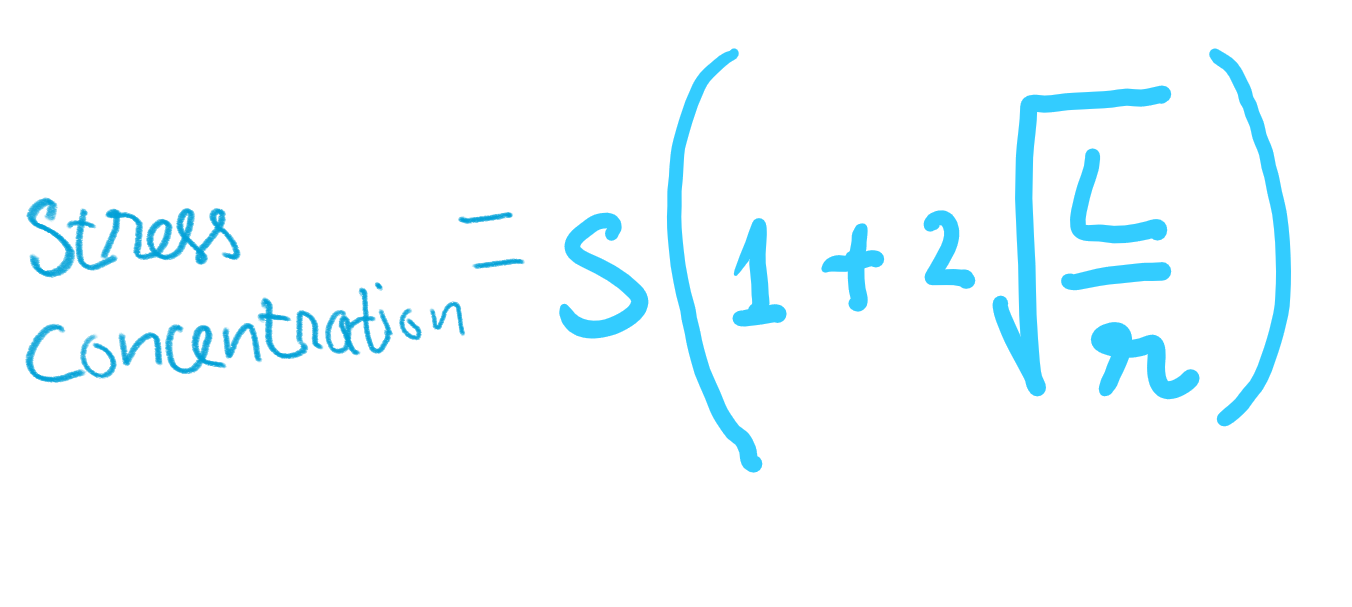 Stress
Concentration = S(1 + 2√(L/r))